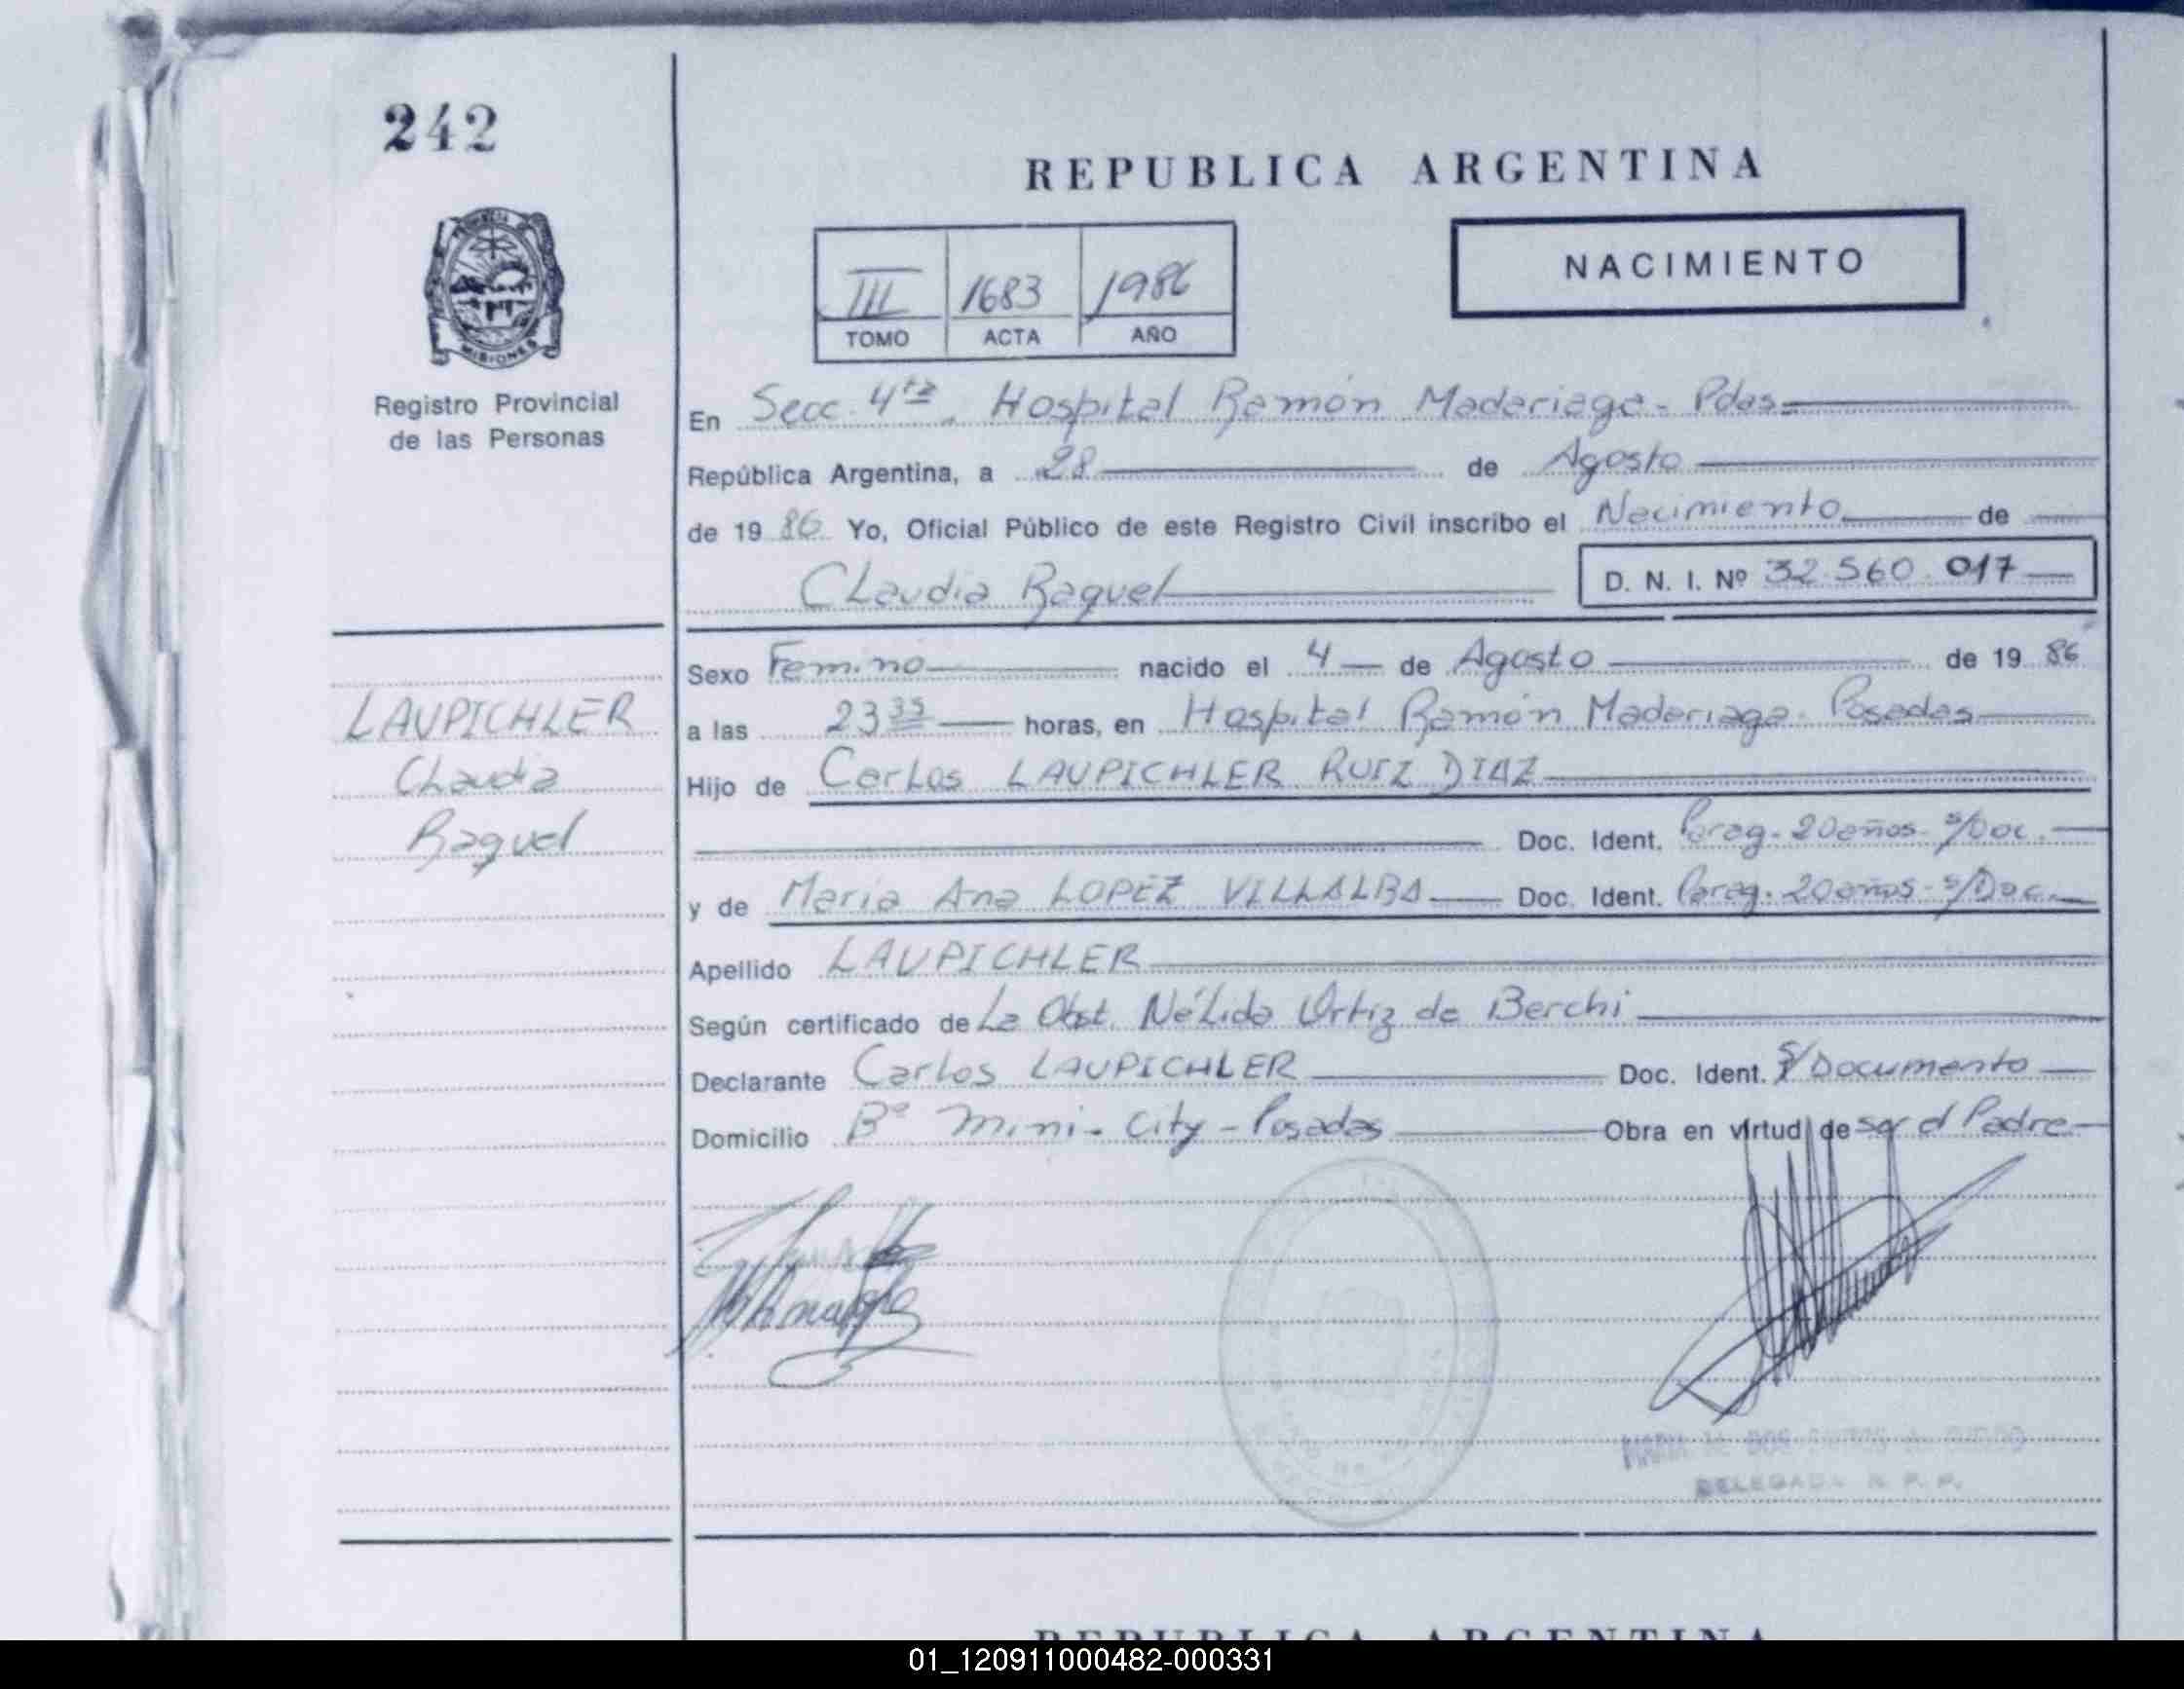 242
REPUBLICA ARGENTINA
III 1683 1986
TOMO ACTA AÑO
NACIMIENTO
MISIONES
Registro Provincial
de las Personas
En Secc. 4ta. Hospital Ramón Madariaga - Pdas.
República Argentina, a 28 de Agosto
de 1986 Yo, Oficial Público de este Registro Civil inscribo el Nacimiento de
Claudia Raquel D. N. I. Nº 32.560.017
Sexo Femino nacido el 4 de Agosto de 1986
LAUPICHLER
Claudia
Raquel
a las 23 35 horas, en Hospital Ramón Madariaga - Posadas
Hijo de Carlos LAUPICHLER RUIZ DIAZ
Doc. Ident. Parag. 20 años - s/Doc.
y de María Ana LOPEZ VILLALBA Doc. Ident. Parag. 20 años - s/Doc.
Apellido LAUPICHLER
Según certificado de La Obst. Nélida Ortiz de Berchi
Declarante Carlos LAUPICHLER Doc. Ident. S/Documento
Domicilio Bº Mini-City - Posadas Obra en virtud de ser el Padre
DELEGADA R. P. P.
REPUBLICA ARGENTINA
01_120911000482-000331